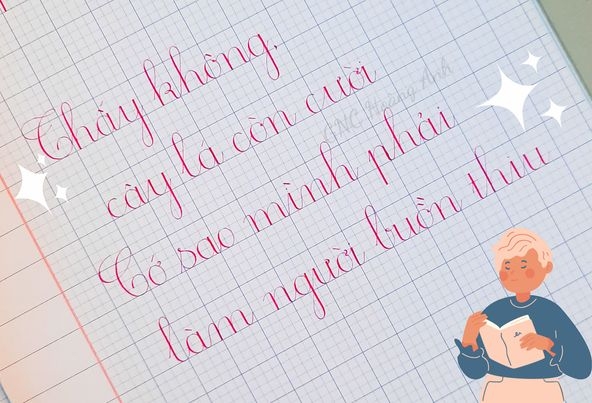 Thấy không,
cây lá còn cười
Hoàng Anh
Cớ sao mình phải
làm người buồn thiu